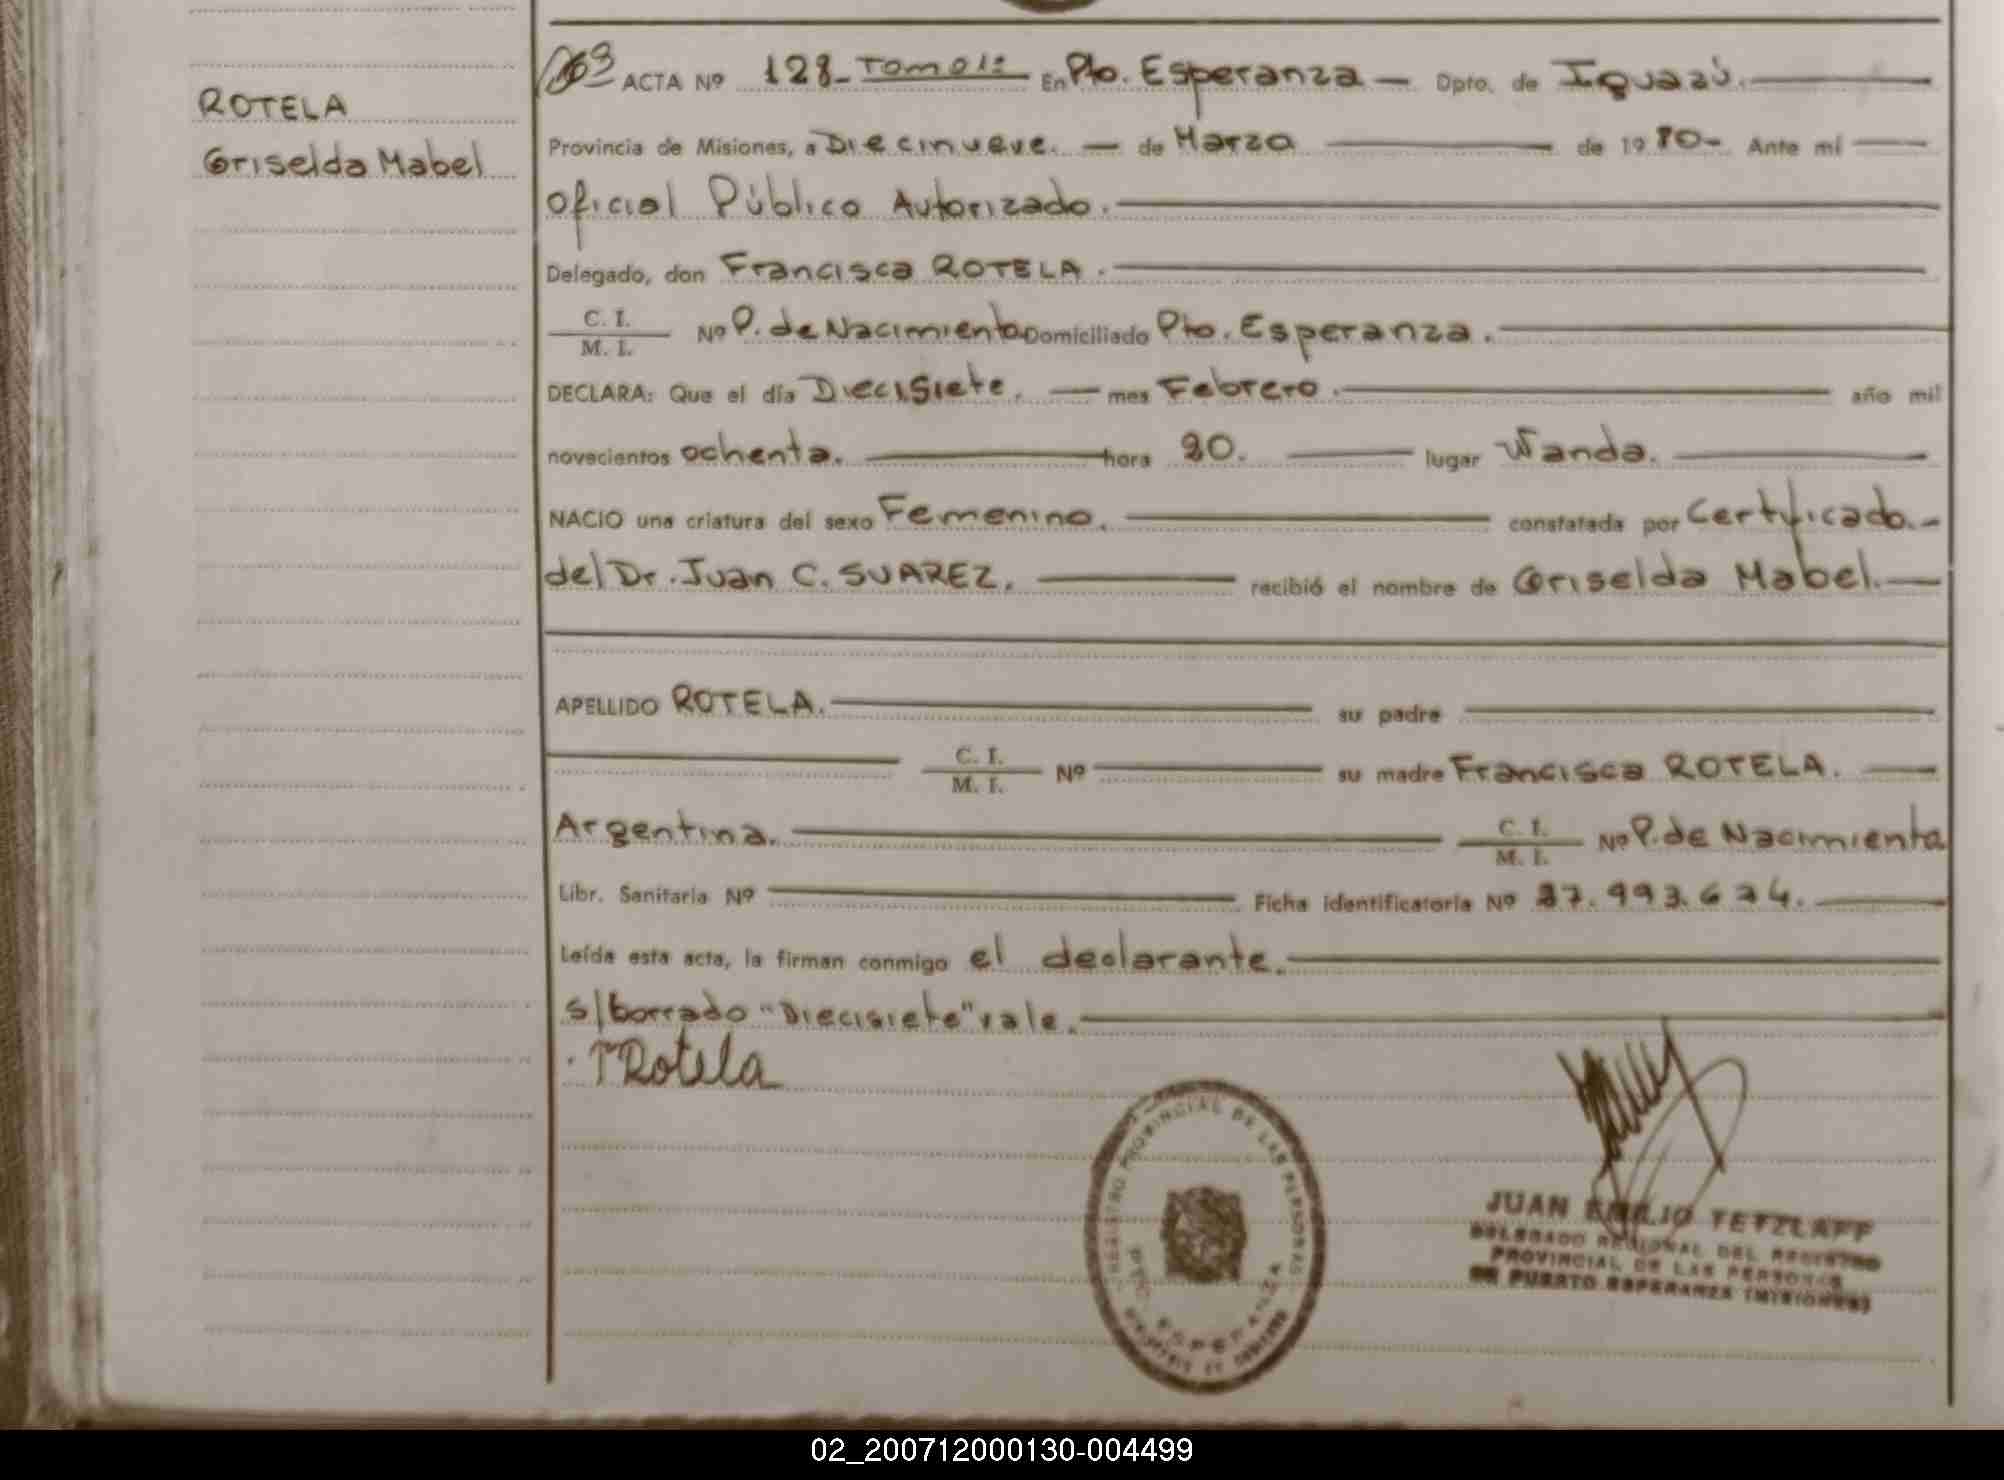 ROTELA
Griselda Mabel
ACTA Nº 128 - Tomo 1º En Pto. Esperanza - Dpto. de Iguazú.
Provincia de Misiones, a Diecinueve. - de Marzo de 1980- Ante mí
Oficial Público Autorizado.
Delegado, don Francisca ROTELA.
C. I.
M. I. Nº P. de Nacimiento Domiciliado Pto. Esperanza.
DECLARA: Que el día Diecisiete. - mes Febrero. año mil
novecientos ochenta. hora 20. lugar Wanda.
NACIO una criatura del sexo Femenino. constatada por Certificado.-
del Dr. Juan C. SUAREZ. recibió el nombre de Griselda Mabel.
APELLIDO ROTELA. su padre
C. I.
M. I. Nº su madre Francisca ROTELA.
Argentina. C. I.
M. I. Nº P. de Nacimiento
Libr. Sanitaria Nº Ficha identificatoria Nº
Leída esta acta, la firman conmigo el declarante.
s/borrado "Diecisiete" vale.
Rotela
REGISTRO PROVINCIAL DE LAS PERSONAS
ESPERANZA
JUAN EMILIO TETZLAFF
DELEGADO REGIONAL DEL REGISTRO
PROVINCIAL DE LAS PERSONAS
DE PUERTO ESPERANZA (MISIONES)
02_200712000130-004499